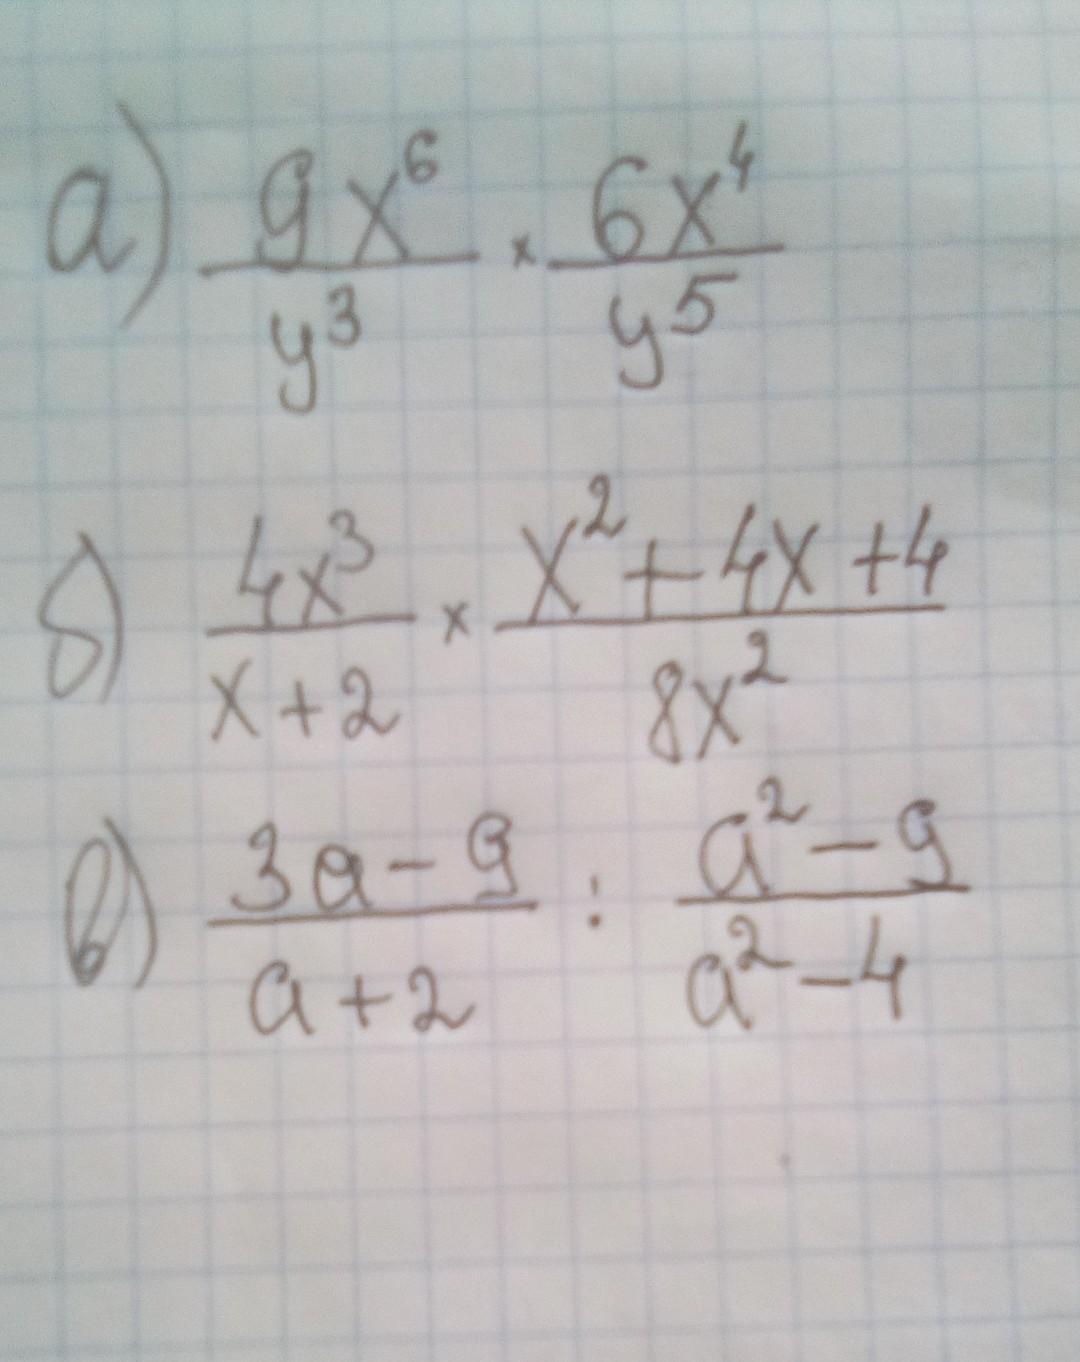 а) 9x⁶/y³ × 6x⁴/y⁵
б) 4x³/x+2 × x²+4x+4/8x²
в) 3a-9/a+2 : a²-9/a²-4